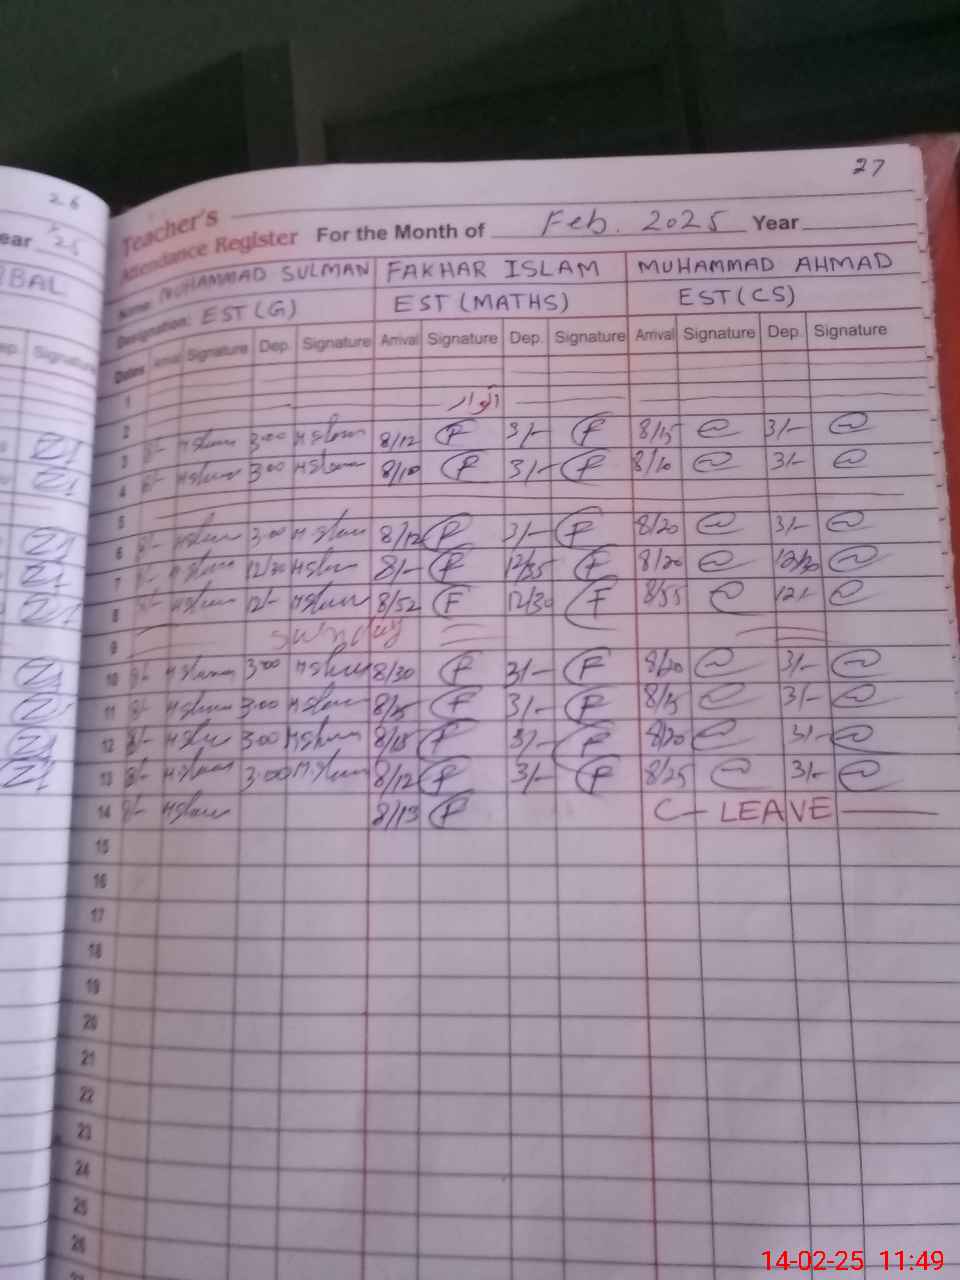 26
27
ear 25
Teacher's
Attendance Register For the Month of Feb. 2025 Year
BAL
Name: MUHAMMAD SULMAN FAKHAR ISLAM MUHAMMAD AHMAD
Designation: EST (G) EST (MATHS) EST (CS)
ep. Signature
Dates Arrival Signature Dep. Signature Arrival Signature Dep. Signature Arrival Signature Dep. Signature
1
اتوار
2
3 8/- 3:00 8/12 F 3/- F 8/15 3/-
4 8/- 3:00 8/10 F 3/- F 8/10 3/-
5
6 8/- 3:00 8/12 F 3/- F 8/20 3/-
7 8/- 12/30 8/- F 12/35 F 8/20 12/30
8 8/- 12/- 8/52 F 12/30 F 8/55 12/-
9 Sunday
10 8/- 3:00 8/30 F 3/- F 8/20 3/-
11 8/- 3:00 8/25 F 3/- F 8/15 3/-
12 8/- 3:00 8/15 F 3/- F 8/20 3/-
13 8/- 3:00 8/12 F 3/- F 8/25 3/-
14 8/- 8/13 F C-LEAVE
15
16
17
18
19
20
21
22
23
24
25
26
14-02-25 11:49